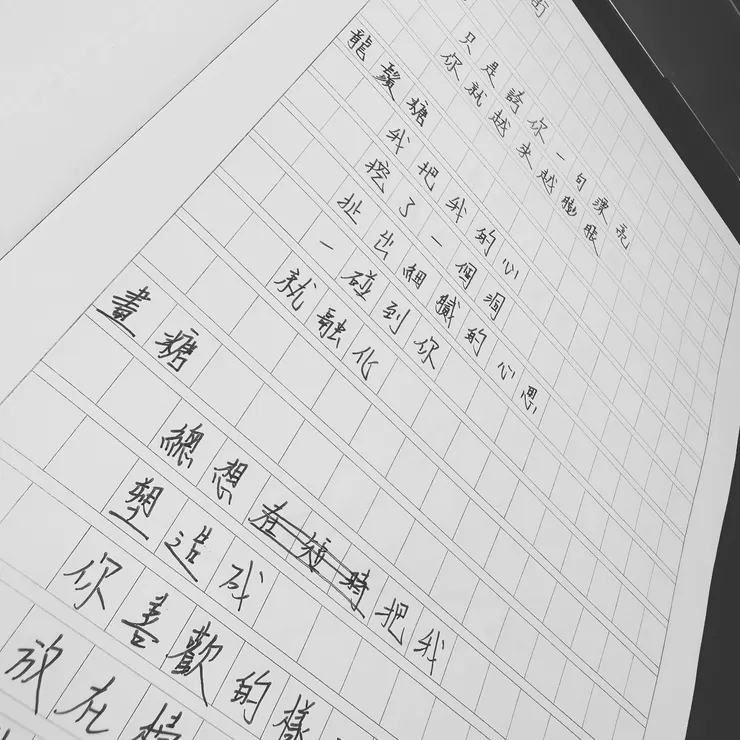 只是誇你一句漂亮
你就越來越膨脹
龍鬚糖
我把我的心
挖了一個洞
扯出細膩的心思
一碰到你
就融化
畫糖
總想在短時把我
塑造成
你喜歡的樣
放在